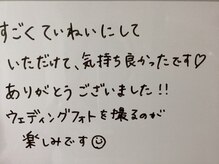 すごくていねいにして
いただけて、気持ち良かったです♡
ありがとうございました!!
ウェディングフォトを撮るのが
楽しみです☺